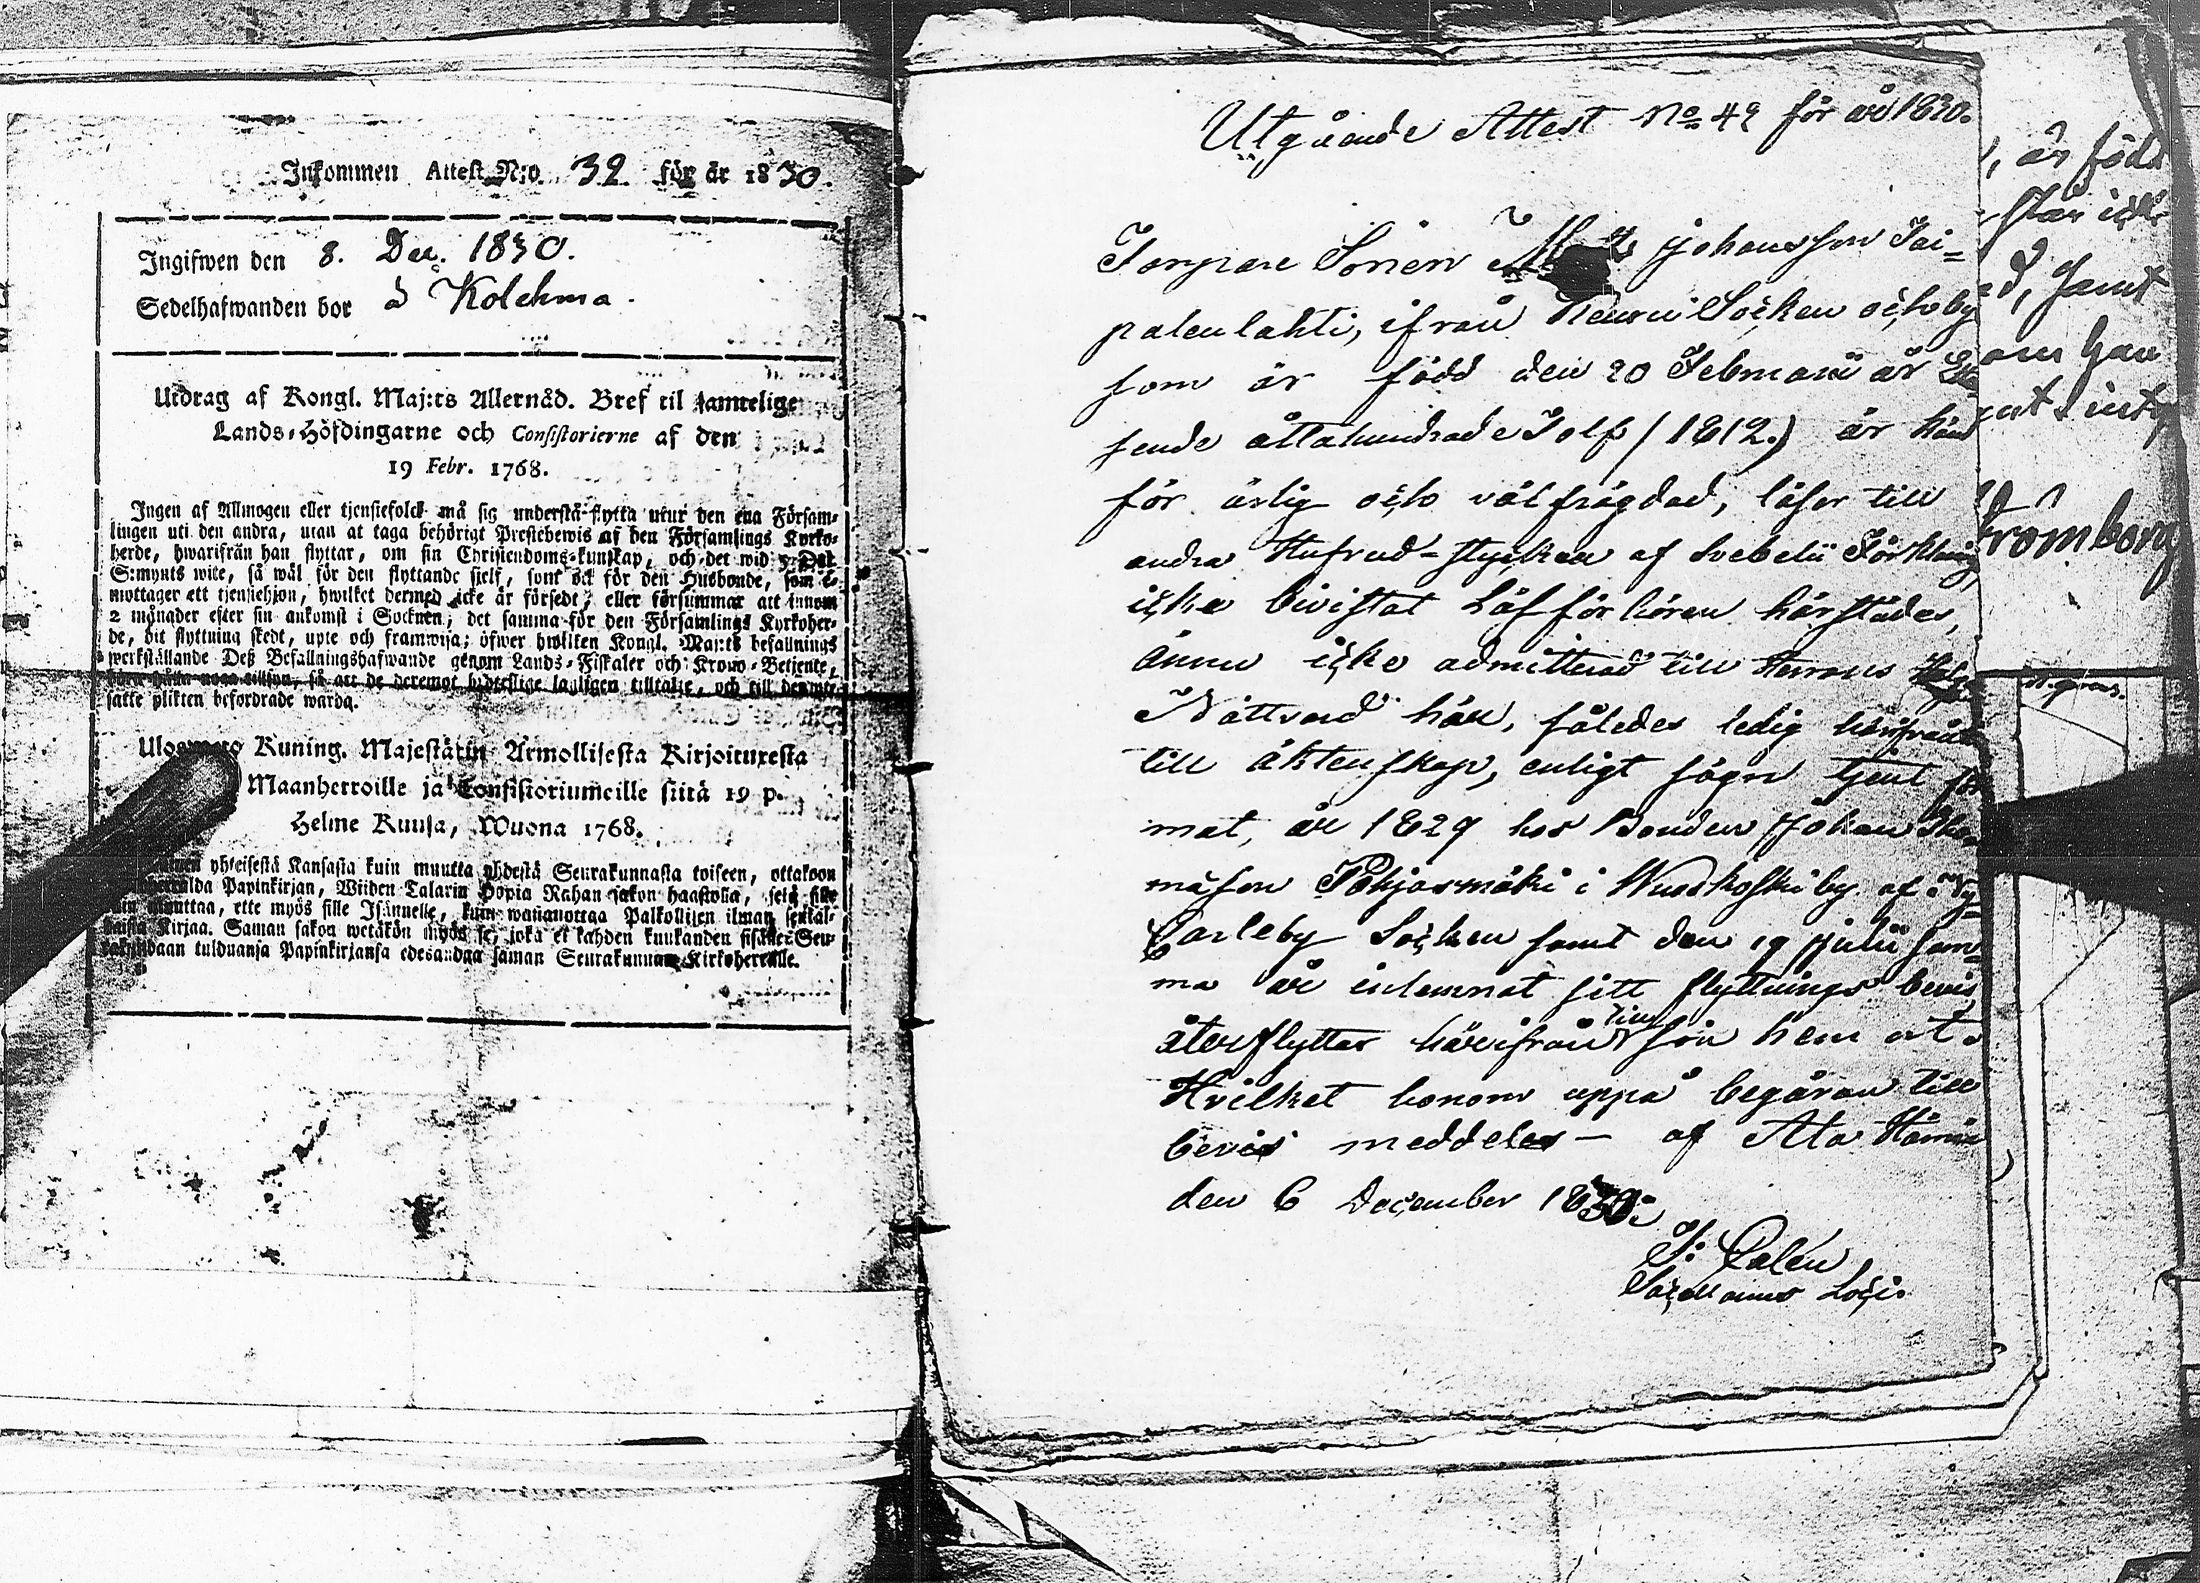 Inkommen Attest N:o. 32 för år 1830.
Ingifwen den 8. Dec. 1830.
Sedelhafwanden bor å Kolehma.
Utdrag af Kongl. Maj:ts Allernåd. Bref til samtelige
Lands-Höfdingarne och Consistorierne af den
19 Febr. 1768.
Ingen af Allmogen eller tjenstefolck må sig understå flytta utur den ena Försam-
lingen uti den andra, utan at taga behörigt Prestebewis af den Församlings Kyrko-
herde, hwarifrån han flyttar, om sin Christendoms-kunskap, och det wid 5 Dal.
S:mynts wite, så wäl för den flyttande sjelf, som ock för den Husbonde, som e-
mottager ett tjenstehjon, hwilket dermed icke är försedt, eller försummar att innom
2 månader efter sin ankomst i Socknen, det samma för den Församlings Kyrkoher-
de, dit flyttning skedt, upte och framwisa; öfwer hwilken Kongl. Maj:ts befallnings
werkställande Deß Befallningshafwande genom Lands-Fiskaler och Krono-Betjente,
böra hålla noga tillsyn, så att de deremot brottslige lagligen tilltalte, och till den ut-
satte plikten befordrade warda.
Ulosweto Kuning. Majestätin Armollisesta Kirjoituxesta
Maanherroille ja Consistoriumeille siitä 19 p.
Helme Kuusa, Wuona 1768.
yhteisestä Kansasta kuin muutta yhdestä Seurakunnasta toiseen, ottakoon
Papinkirjan, Wiiden Talarin Hopia Rahan sakon haastolla, setä sille
muuttaa, ette myös sille Isännelle, kuin wastanottaa Palkollisen ilman senkal-
taista Kirjaa. Saman sakon wetäkön myös se, joka ei kahden kuukauden sisälle Seu-
rakundaan tulduansa Papinkirjansa edesandaa saman Seurakunnan Kirkoherralle.
Utgående Attest No 49 för år 1830.
Torpare Sonen Matts Johansson Tai-
palenlahti, ifrån Keuru Socken och by
som är född den 20 Februarii år
sende åttahundrade Tolf (1812.) är känd
för ärlig och välfrägdad, läser till
andra Hufvud-stycken af Svebelii Förklaring,
icke bivistat Läsförhören härstädes,
ännu icke admitterad till Herrans
Nattvard här, således ledig härifrån
till äktenskap, enligt sägn tjent för
mat, år 1829 hos Bonden Johan Tho-
mäson Pohjasmäki i Wuoskoski by af Ny-
Carleby Socken samt den 19 Julii sam-
ma år inlemnat sitt flyttnings bevis,
återflyttar härifrån till sin hem ort.
Hvilket honom uppå begäran till
bevis meddeles – af Ala Härmä
den 6 December 1830.
J: Calen
Sacellanus Loci.
, är född
står icke
d, samt
om han
römborg